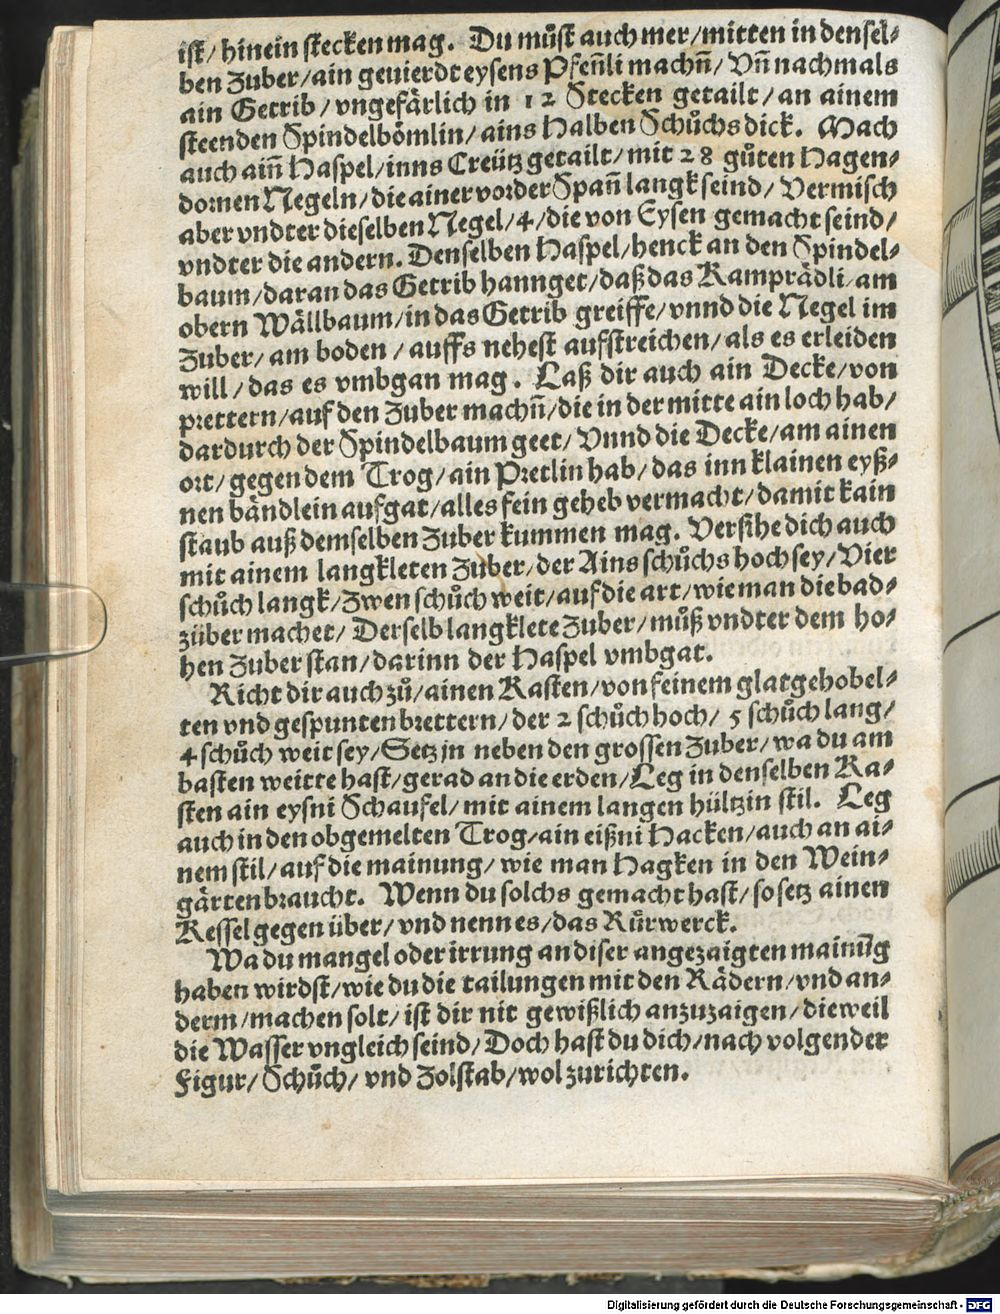 ist/ hinein stecken mag. Du můst auch mer/ mitten in densel⸗
ben Zuber/ ain geuierdt eysens Pfeñli machñ/ Vñ nachmals
ain Getrib/ vngefärlich in 12 Stecken getailt/ an ainem
steenden Spindelbömlin/ ains Halben Schůchs dick. Mach
auch aiñ Haspel/ inns Creütz getailt/ mit 28 gůten Hagen⸗
dornen Negeln/ die ainer vorder Spañ langk seind/ Vermisch
aber vndter dieselben Negel/ 4/ die von Eysen gemacht seind/
vndter die andern. Denselben Haspel/ henck an den Spindel⸗
baum/ daran das Getrib hannget/ daß das Kamprädli/ am
obern Wällbaum/ in das Getrib greiffe/ vnnd die Negel im
Zuber/ am boden/ auffs nehest aufstreichen/ als es erleiden
will/ das es vmbgan mag. Laß dir auch ain Decke/ von
prettern/ auf den Zuber machñ/ die in der mitte ain loch hab/
dardurch der Spindelbaum geet/ Vnnd die Decke/ am ainen
ort/ gegen dem Trog/ ain Pretlin hab/ das inn klainen eyß⸗
nen bändlein aufgat/ alles fein geheb vermacht/ damit kain
staub auß demselben Zuber kummen mag. Versihe dich auch
mit ainem langkleten Zuber/ der Ains schůchs hoch sey/ Vier
schůch langk/ Zwen schůch weit/ auf die art/ wie man die bad⸗
züber machet/ Derselb langklete Zuber/ můß vndter dem ho⸗
hen Zuber stan/ darinn der Haspel vmbgat.
Richt dir auch zů/ ainen Kasten/ von feinem glatgehobel⸗
ten vnd gespunten brettern/ der 2 schůch hoch/ 5 schůch lang/
4 schůch weit sey/ Setz jn neben den grossen Zuber/ wa du am
basten weitte hast/ gerad an die erden/ Leg in denselben Ka⸗
sten ain eysni Schaufel/ mit ainem langen hültzin stil. Leg
auch in den obgemelten Trog/ ain eißni Hacken/ auch an ai⸗
nem stil/ auf die mainung/ wie man Hagken in den Wein⸗
gärten braucht. Wenn du solchs gemacht hast/ so setz ainen
Kessel gegen über/ vnd nenn es/ das Růrwerck.
Wa du mangel oder irrung an diser angezaigten mainũg
haben wirdst/ wie du die tailungen mit den Rädern/ vnd an⸗
derm/ machen solt/ ist dir nit gewißlich anzuzaigen/ dieweil
die Wasser vngleich seind/ Doch hast du dich/ nach volgender
Figur/ Schůch/ vnd Zolstab/ wol zurichten.
Digitalisierung gefördert durch die Deutsche Forschungsgemeinschaft - DFG